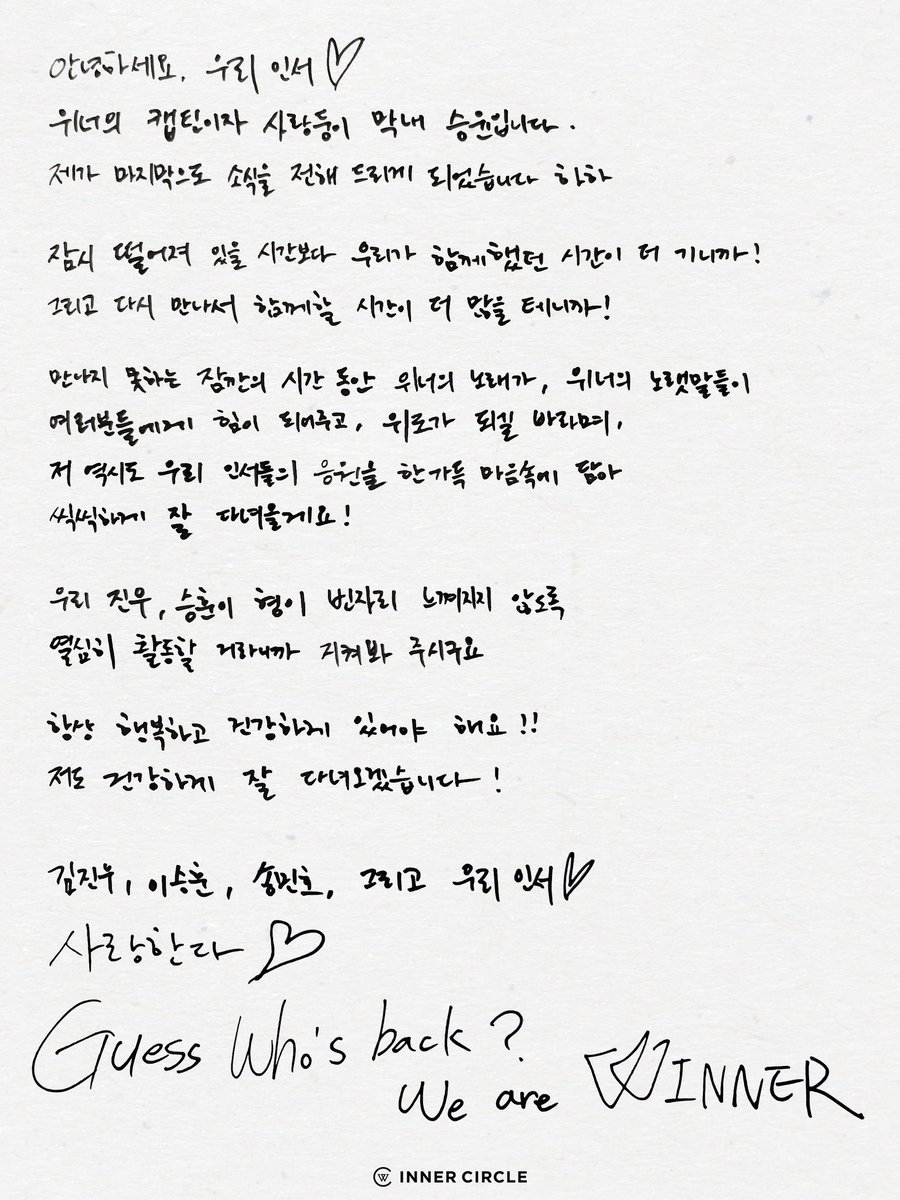 안녕하세요, 우리 인서♡
위너의 캡틴이자 사랑둥이 막내 승윤입니다.
제가 마지막으로 소식을 전해 드리게 되었습니다 하하
잠시 떨어져 있을 시간보다 우리가 함께했던 시간이 더 기니까!
그리고 다시 만나서 함께할 시간이 더 많을 테니까!
만나지 못하는 잠깐의 시간 동안 위너의 노래가, 위너의 노랫말들이
여러분들에게 힘이 되어주고, 위로가 되길 바라며,
저 역시도 우리 인서들의 응원을 한가득 마음속에 담아
씩씩하게 잘 다녀올게요!
우리 진우, 승훈이 형이 빈자리 느껴지지 않도록
열심히 활동할 거라니까 지켜봐 주시구요
항상 행복하고 건강하게 있어야 해요!!
저도 건강하게 잘 다녀오겠습니다!
김진우, 이승훈, 송민호, 그리고 우리 인서♡
사랑한다♡
Guess Who's back?
We are WINNER
W INNER CIRCLE